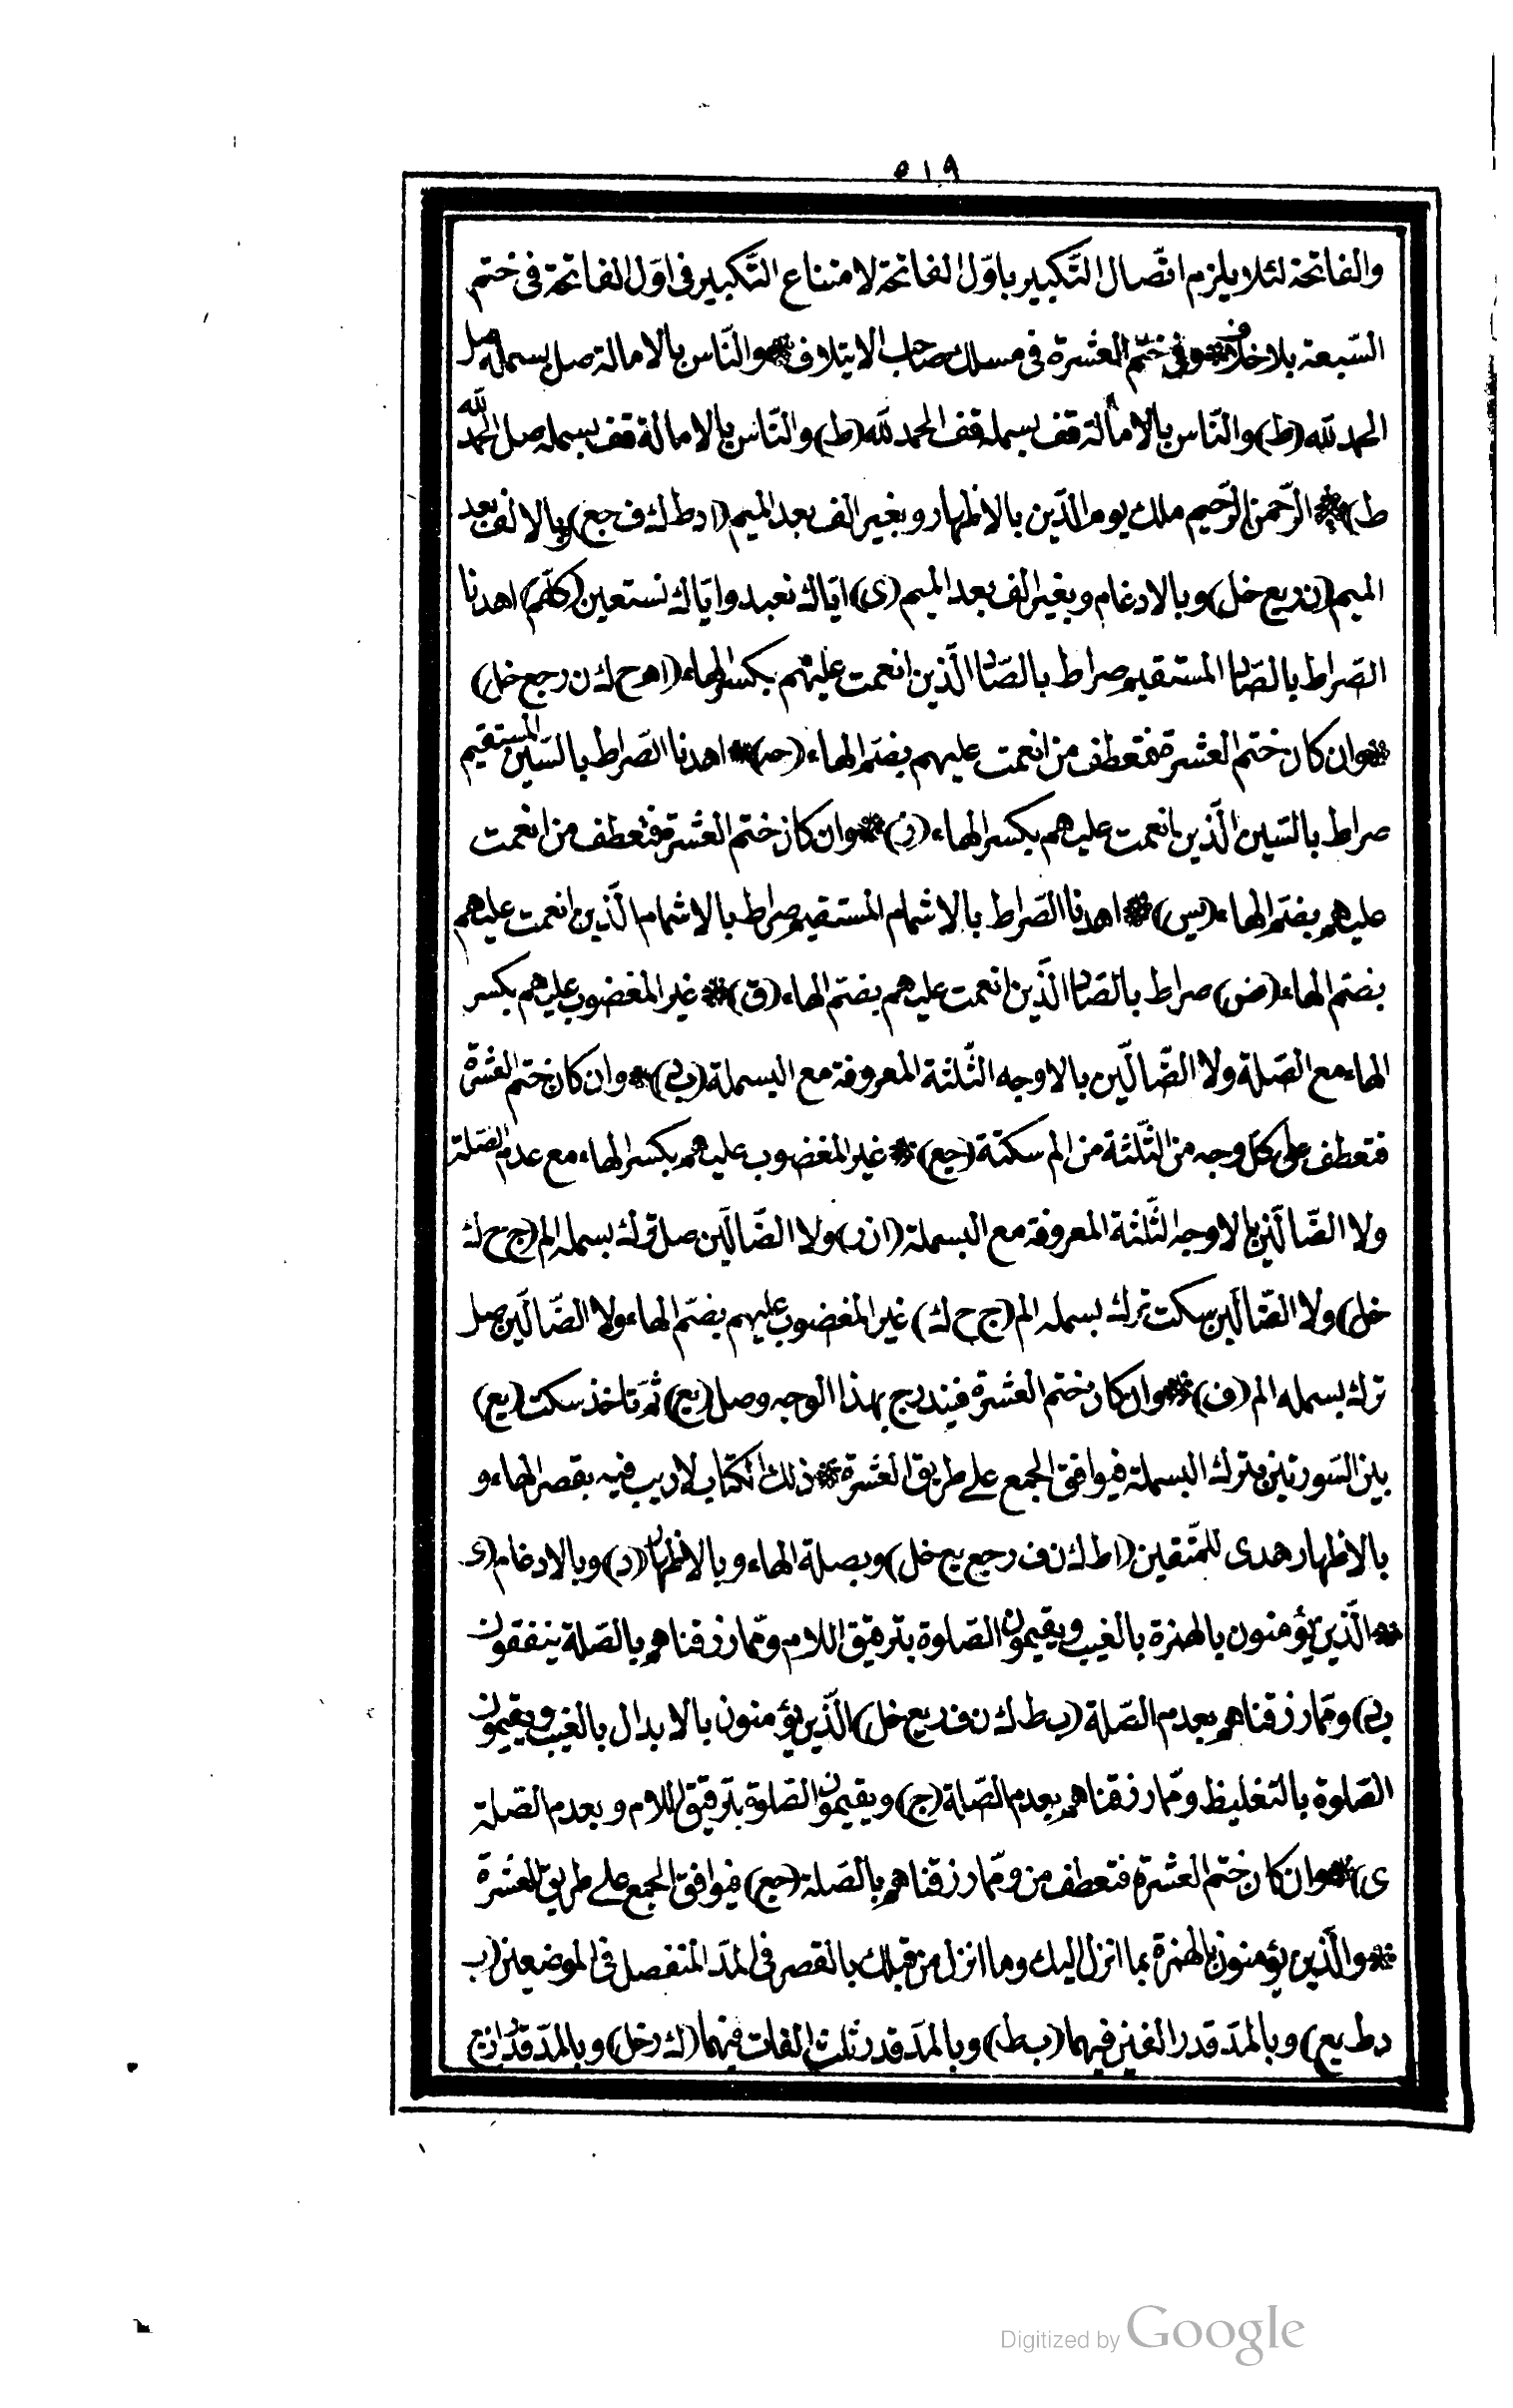 ٥١٩
والفاتحة لئلا يلزم اتّصال التّكبير باوّل الفاتحة لامتناع التّكبير فى اوّل الفاتحة فى ختم
السّبعة بلا خلاف وفى ختم العشرة فى مسلك صاحب الايتلاف والنّاس بالامالة صل بسمله صل
الحمد لله (ط) والنّاس بالامالة قف بسمله قف الحمد لله (ط) والنّاس بالامالة قف بسمله صل الحمد لله
ط) الرّحمن الرّحيم ملك يوم الدّين بالاظهار وبغير الف بعد الميم (ا د ط ك ف جع) وبالالف بعد
الميم (ن ر يع خل) وبالادغام وبغير الف بعد الميم (ى) ايّاك نعبد وايّاك نستعين (كلّهم) اهدنا
الصّراط بالصّاد المستقيم صراط بالصّاد الّذين انعمت عليهم بكسر الهاء (ا ه ح ك ن ر جع خل)
وان كان ختم العشرة فتعطف من انعمت عليهم بضمّ الهاء (حه) اهدنا الصّراط بالسّين المستقيم
صراط بالسّين الّذين انعمت عليهم بكسر الهاء (ز) وان كان ختم العشرة فتعطف من انعمت
عليهم بضمّ الهاء (يس) اهدنا الصّراط بالاشمام المستقيم صراط بالاشمام الّذين انعمت عليهم
بضمّ الهاء (ض) صراط بالصّاد الّذين انعمت عليهم بضمّ الهاء (ق) غير المغضوب عليهم بكسر
الهاء مع الصّلة ولا الضّالّين بالاوجه الثّلثة المعروفة مع البسملة (ب د) وان كان ختم العشرة
فتعطف على كلّ وجه من الثّلثة من الم سكتة (جع) غير المغضوب عليهم بكسر الهاء مع عدم الصّلة
ولا الضّالّين بالاوجه الثّلثة المعروفة مع البسملة (ا ن ر) ولا الضّالّين صل ترك بسمله الم (ج ح ك
خل) ولا الضّالّين سكت ترك بسمله الم (ج ح ك) غير المغضوب عليهم بضمّ الهاء ولا الضّالّين صل
ترك بسمله الم (ف) وان كان ختم العشرة فيندرج بهذا الوجه وصل (يع) ثمّ تاخذ سكت (يع)
بين السّورتين بترك البسملة فيوافق الجمع على طريق العشرة ذلك الكتاب لا ريب فيه بقصر الهاء و
بالاظهار هدى للمتّقين (ا ط ك ن ف ر جع يع خل) وبصلة الهاء وبالاظهار (د) وبالادغام (ى
الّذين يؤمنون بالهمزة بالغيب ويقيمون الصّلوة بترقيق اللام وممّا رزقناهم بالصّلة ينفقون
ب د) وممّا رزقناهم بعدم الصّلة (ب ط ك ن ف ر يع خل) الّذين يؤمنون بالابدال بالغيب ويقيمون
الصّلوة بالتّغليظ وممّا رزقناهم بعدم الصّلة (ج) ويقيمون الصّلوة بترقيق اللام وبعدم الصّلة
ى) وان كان ختم العشرة فتعطف من وممّا رزقناهم بالصّلة (جع) فيوافق الجمع على طريق العشرة
والّذين يؤمنون بالهمزة بما انزل اليك وما انزل من قبلك بالقصر فى المدّ المنفصل فى الموضعين (ب
د ط يع) وبالمدّ قدر الفين فيهما (ب ط) وبالمدّ قدر ثلث الفات فيهما (ك ر خل) وبالمدّ قدر اربع
Digitized by Google